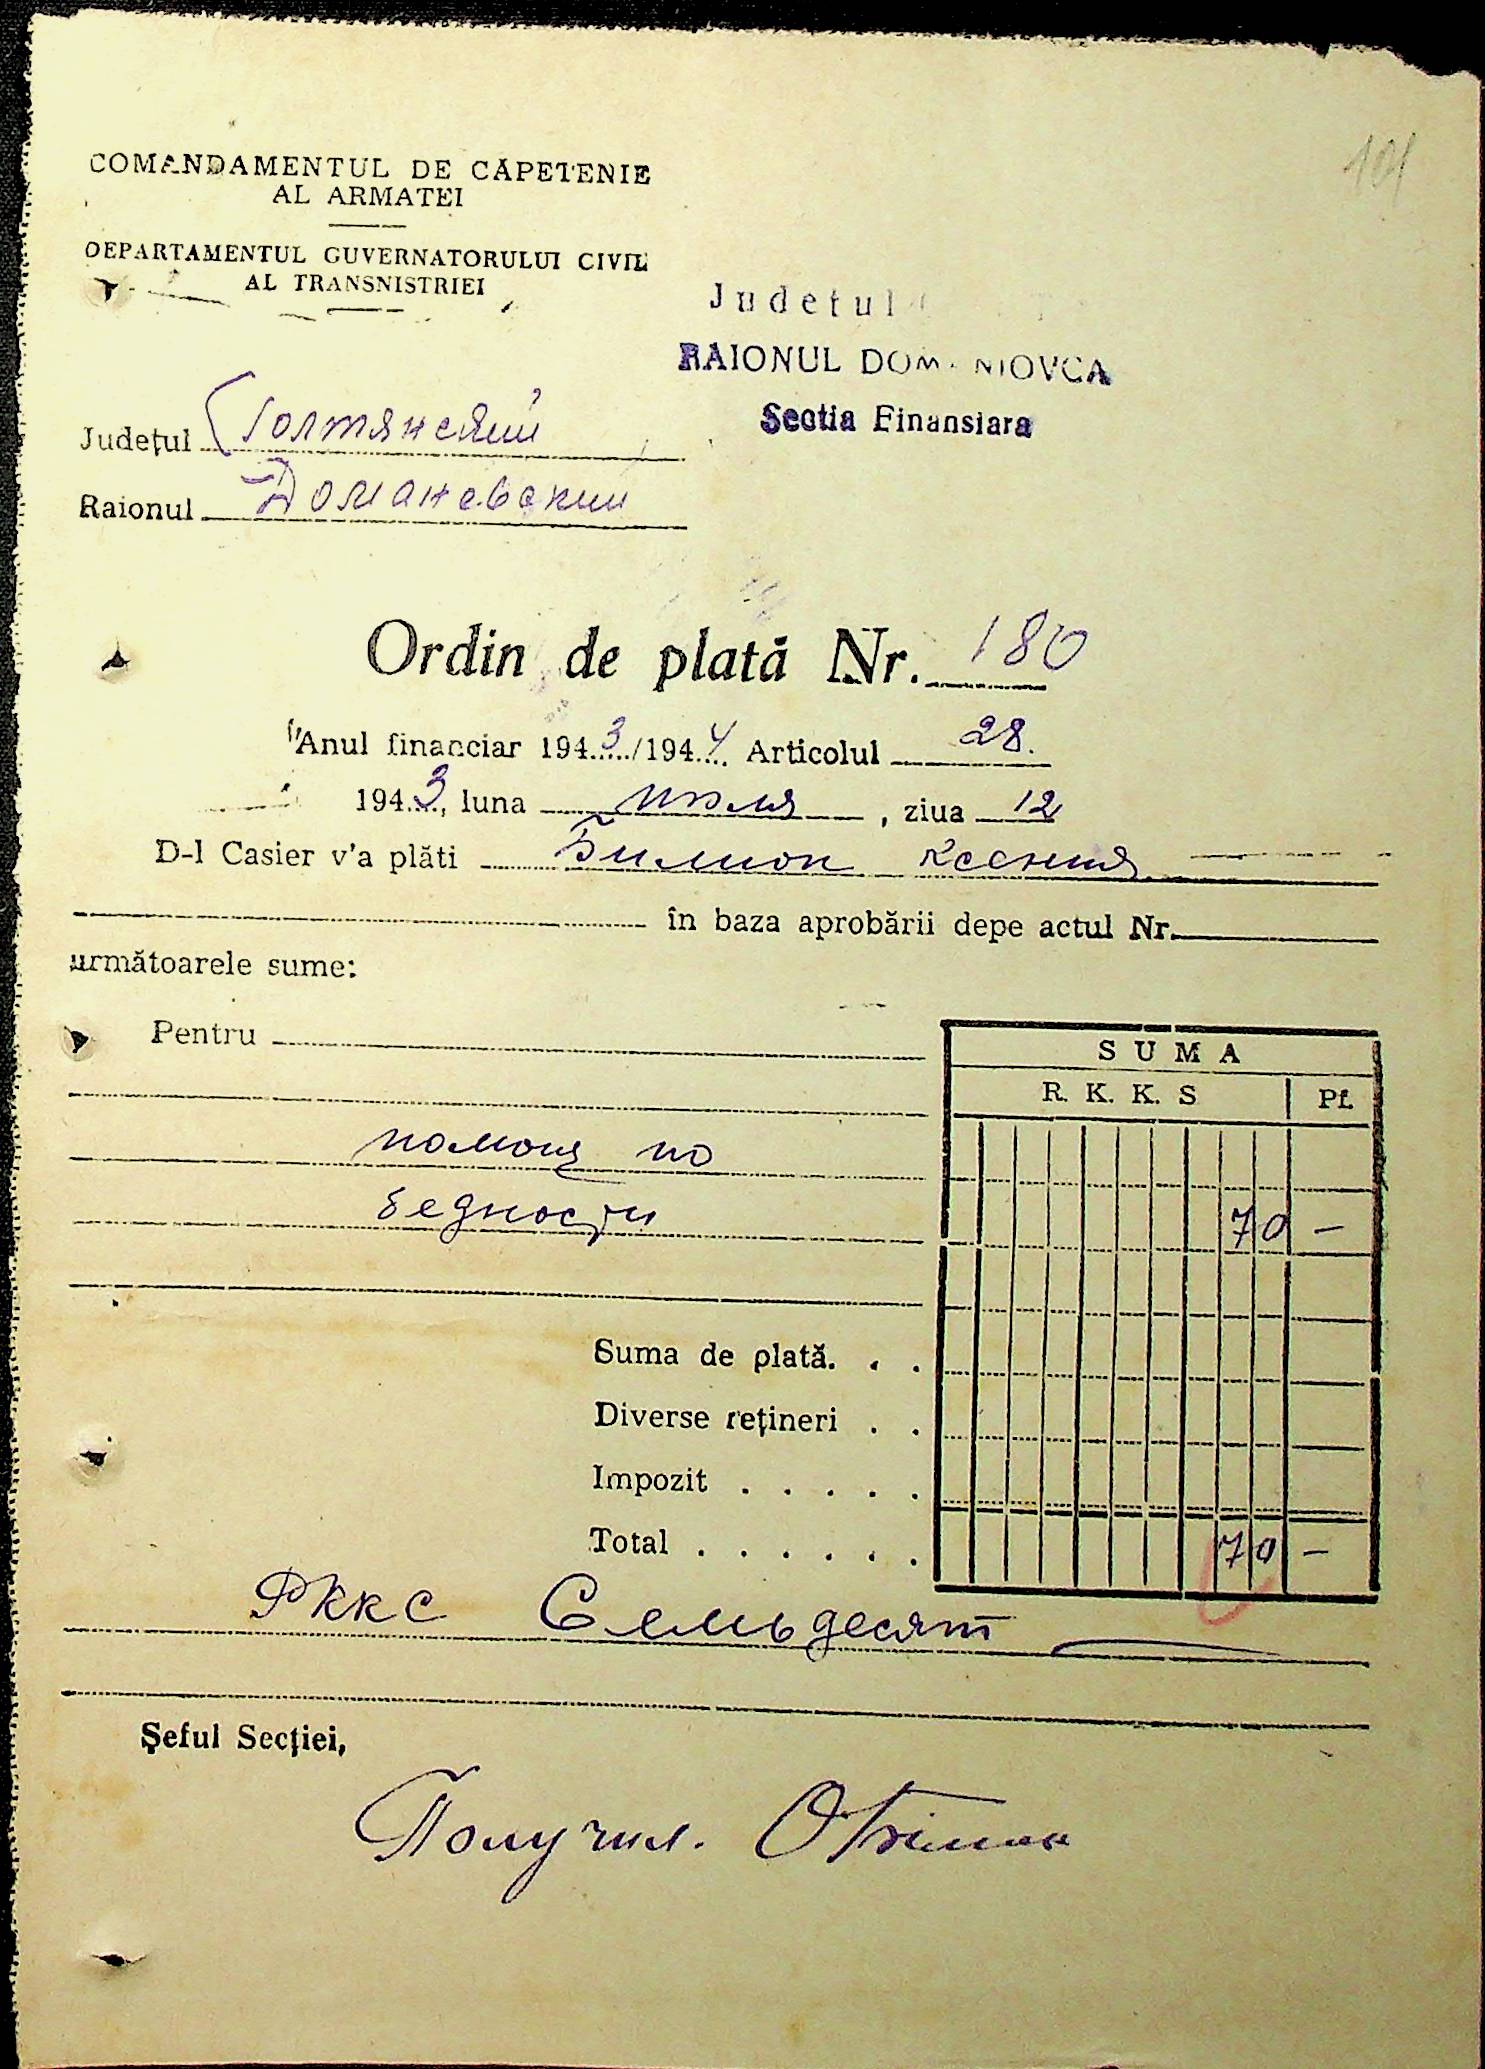 101
COMANDAMENTUL DE CĂPETENIE
AL ARMATEI
DEPARTAMENTUL GUVERNATORULUI CIVIL
AL TRANSNISTRIEI
Judetul
RAIONUL DOM NIOVCA
Sectia Finansiara
Județul Голтянский
Raionul Доманевский
Ordin de plată Nr. 180
Anul financiar 1943/1944 Articolul 28.
1943, luna июля, ziua 12
D-l Casier v'a plăti Билиок Ксения
în baza aprobării depe actul Nr.
următoarele sume:
Pentru
SUMA
R. K. K. S Pf.
помощь по
бедности 70 —
Suma de plată. . .
Diverse rețineri . .
Impozit . . . . .
Total . . . . . . 70 —
РККС Семьдесят
Șeful Secției,
Получил.